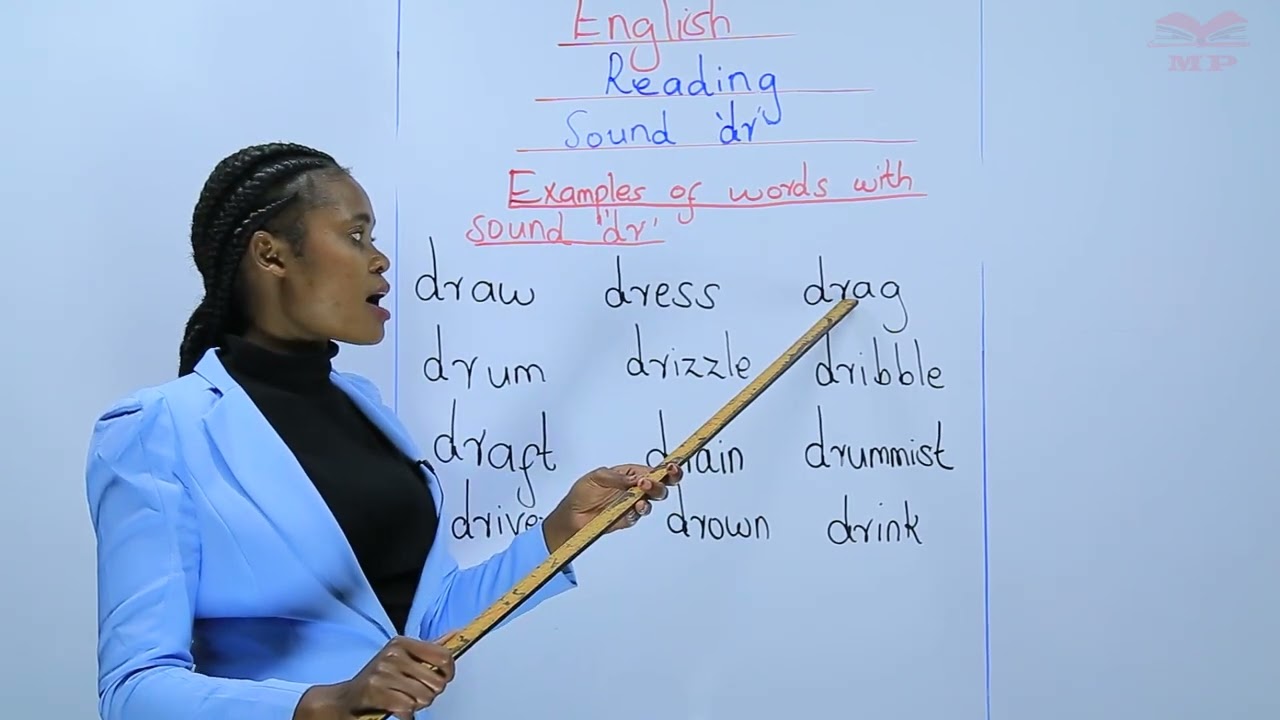 English
Reading
Sound 'dr'
Examples of words with
sound 'dr'
draw dress drag
drum drizzle dribble
draft drain drummist
drive drown drink
MP